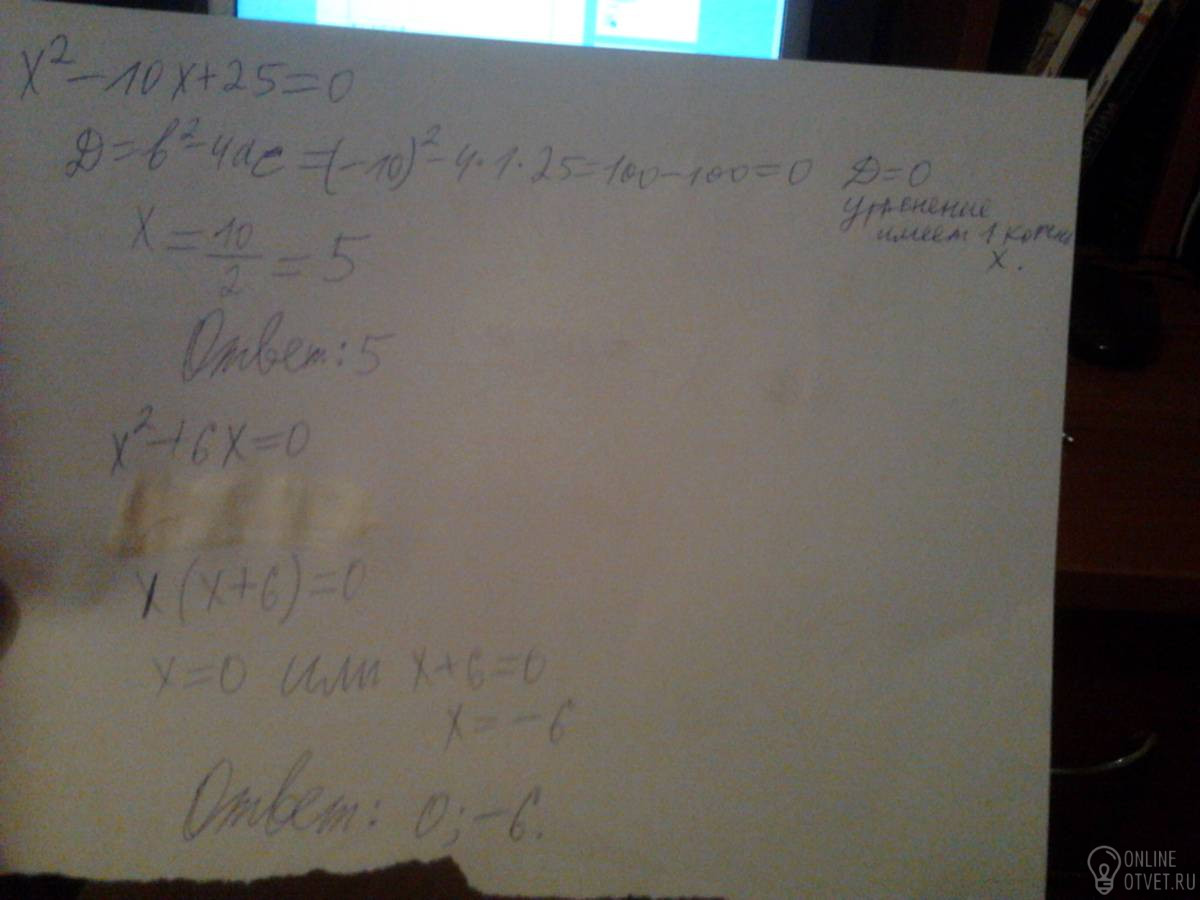 x² - 10x + 25 = 0
D = b² - 4ac = (-10)² - 4·1·25 = 100 - 100 = 0
D = 0
уравнение
имеет 1 корень
x.
x = 10/2 = 5
Ответ: 5
x² + 6x = 0
x(x+6) = 0
x = 0 или x + 6 = 0
x = -6
Ответ: 0; -6.
ONLINE
OTVET.RU